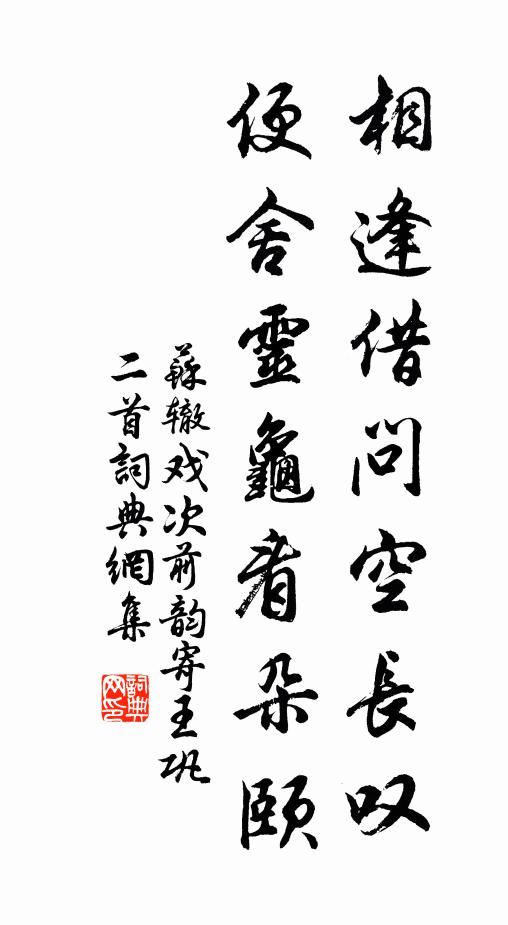 相逢借问空長叹
便舍靈龜看朵頤
蘇辙戏次前韵寄王巩
二首詞典網集
詞典
网印